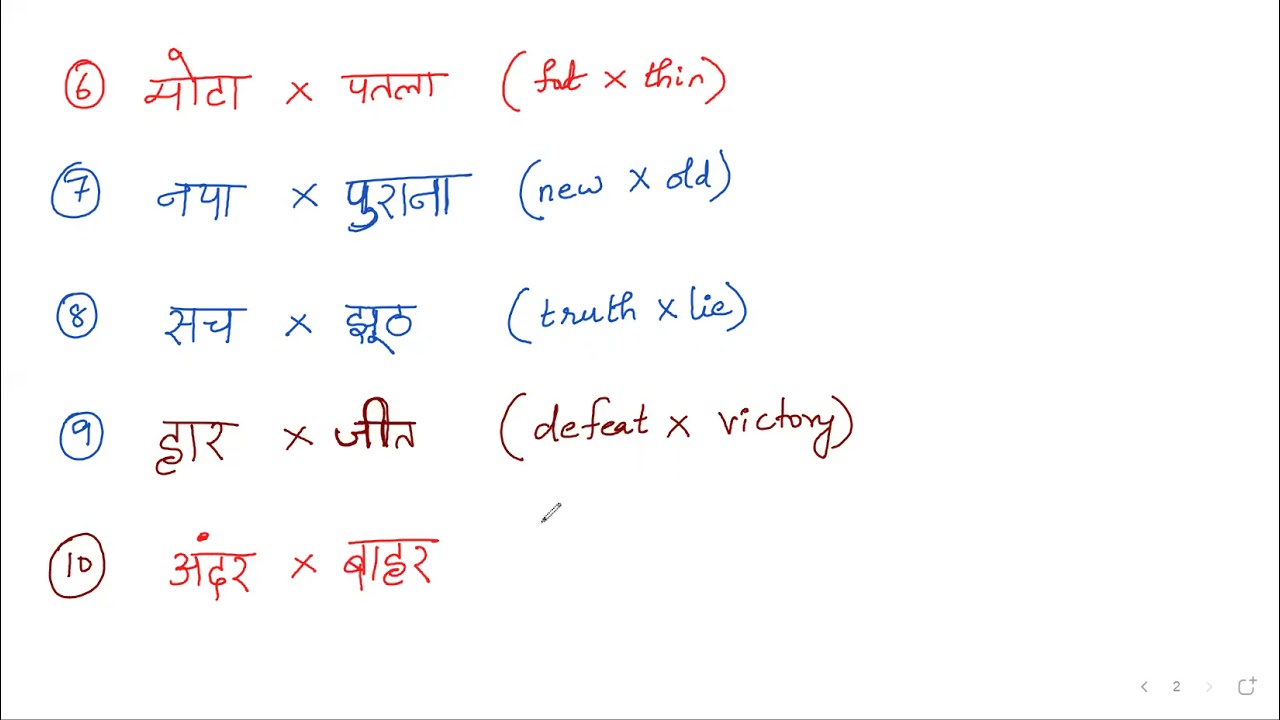 6 मोटा × पतला (fat × thin)
7 नया × पुराना (new × old)
8 सच × झूठ (truth × lie)
9 हार × जीत (defeat × victory)
10 अंदर × बाहर
2